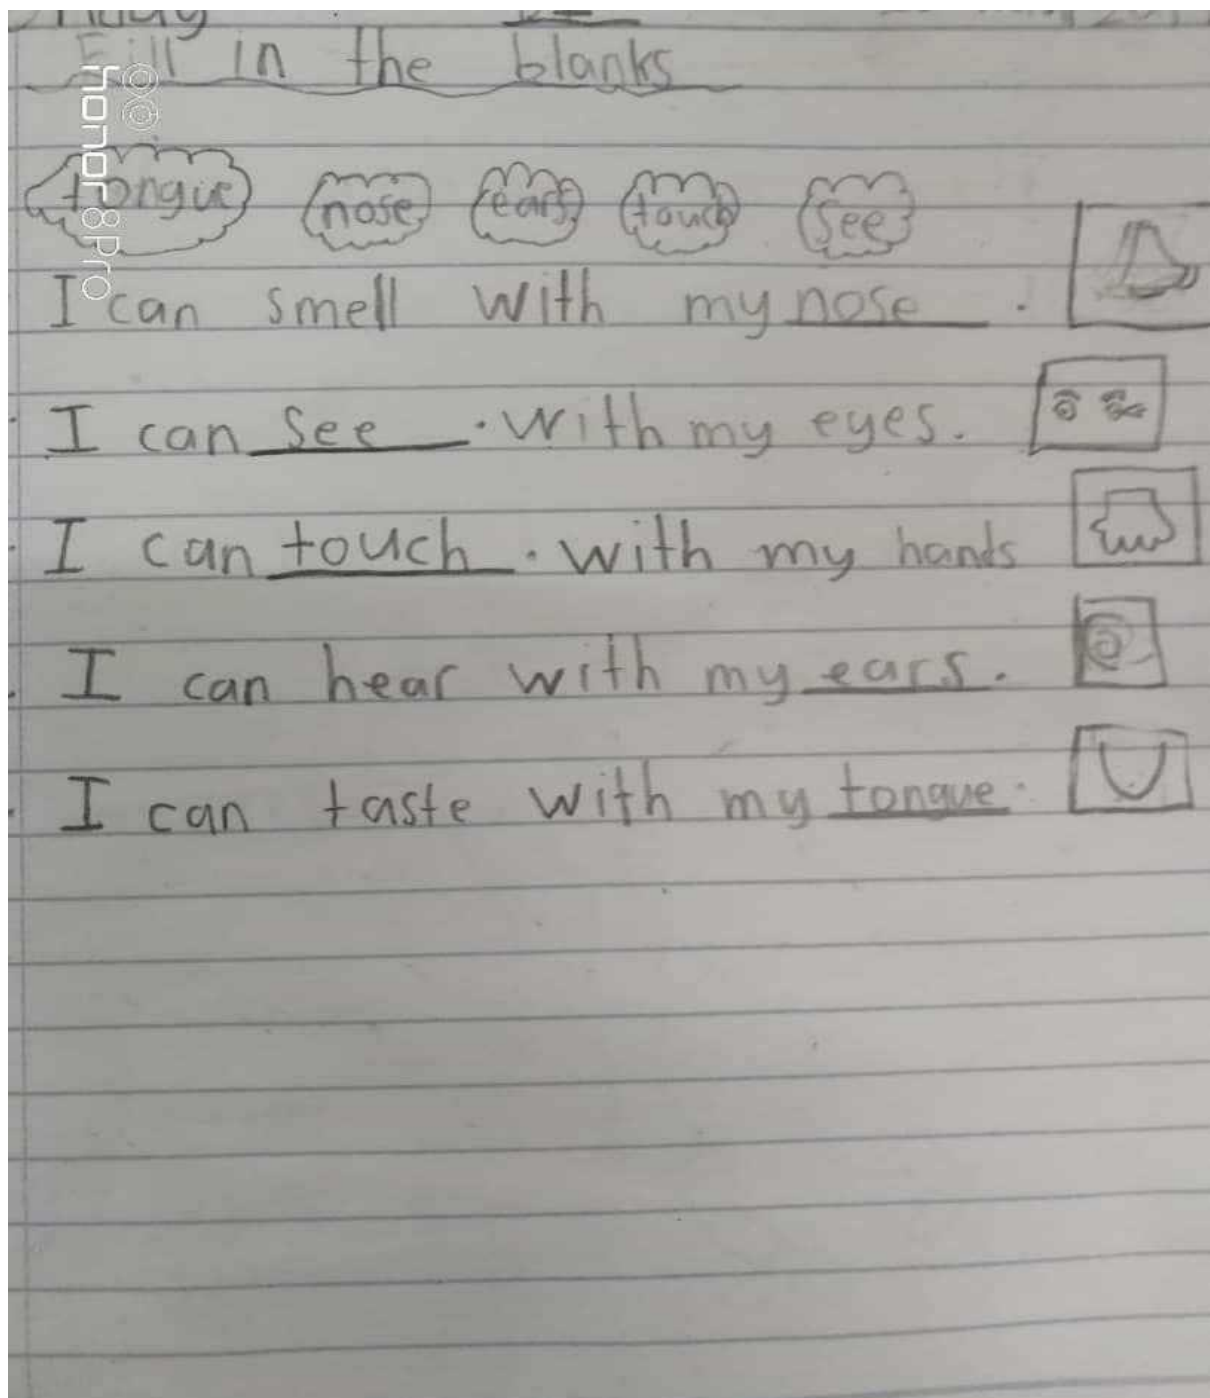 Fill in the blanks
tongue nose ears touch see
I can smell with my nose .
I can see . with my eyes.
I can touch . with my hands
I can hear with my ears.
I can taste with my tongue.
honor 8 Pro